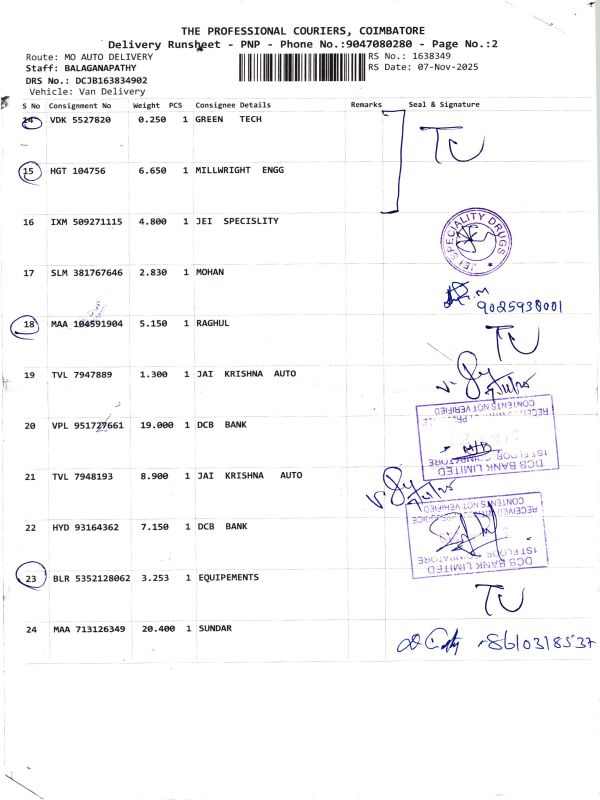 THE PROFESSIONAL COURIERS, COIMBATORE
Delivery Runsheet - PNP - Phone No.:9047080280 - Page No.:2
Route: MO AUTO DELIVERY
RS No.: 1638349
Staff: BALAGANAPATHY
RS Date: 07-Nov-2025
DRS No.: DCJB163834902
Vehicle: Van Delivery
S No Consignment No Weight PCS Consignee Details Remarks Seal & Signature
14 VDK 5527820 0.250 1 GREEN TECH
TU
15 HGT 104756 6.650 1 MILLWRIGHT ENGG
16 IXM 509271115 4.800 1 JEI SPECISLITY
JEI SPECIALITY DRUGS
17 SLM 381767646 2.830 1 MOHAN
9025938001
18 MAA 104591904 5.150 1 RAGHUL
TU
19 TVL 7947889 1.300 1 JAI KRISHNA AUTO
20 VPL 951727661 19.000 1 DCB BANK
DCB BANK LIMITED
1ST FLOOR, COIMBATORE
CONTENTS NOT VERIFIED
21 TVL 7948193 8.900 1 JAI KRISHNA AUTO
22 HYD 93164362 7.150 1 DCB BANK
DCB BANK LIMITED
1ST FLOOR
RECEIVED
CONTENTS NOT VERIFIED
23 BLR 5352128062 3.253 1 EQUIPEMENTS
TU
24 MAA 713126349 20.400 1 SUNDAR
8610318537